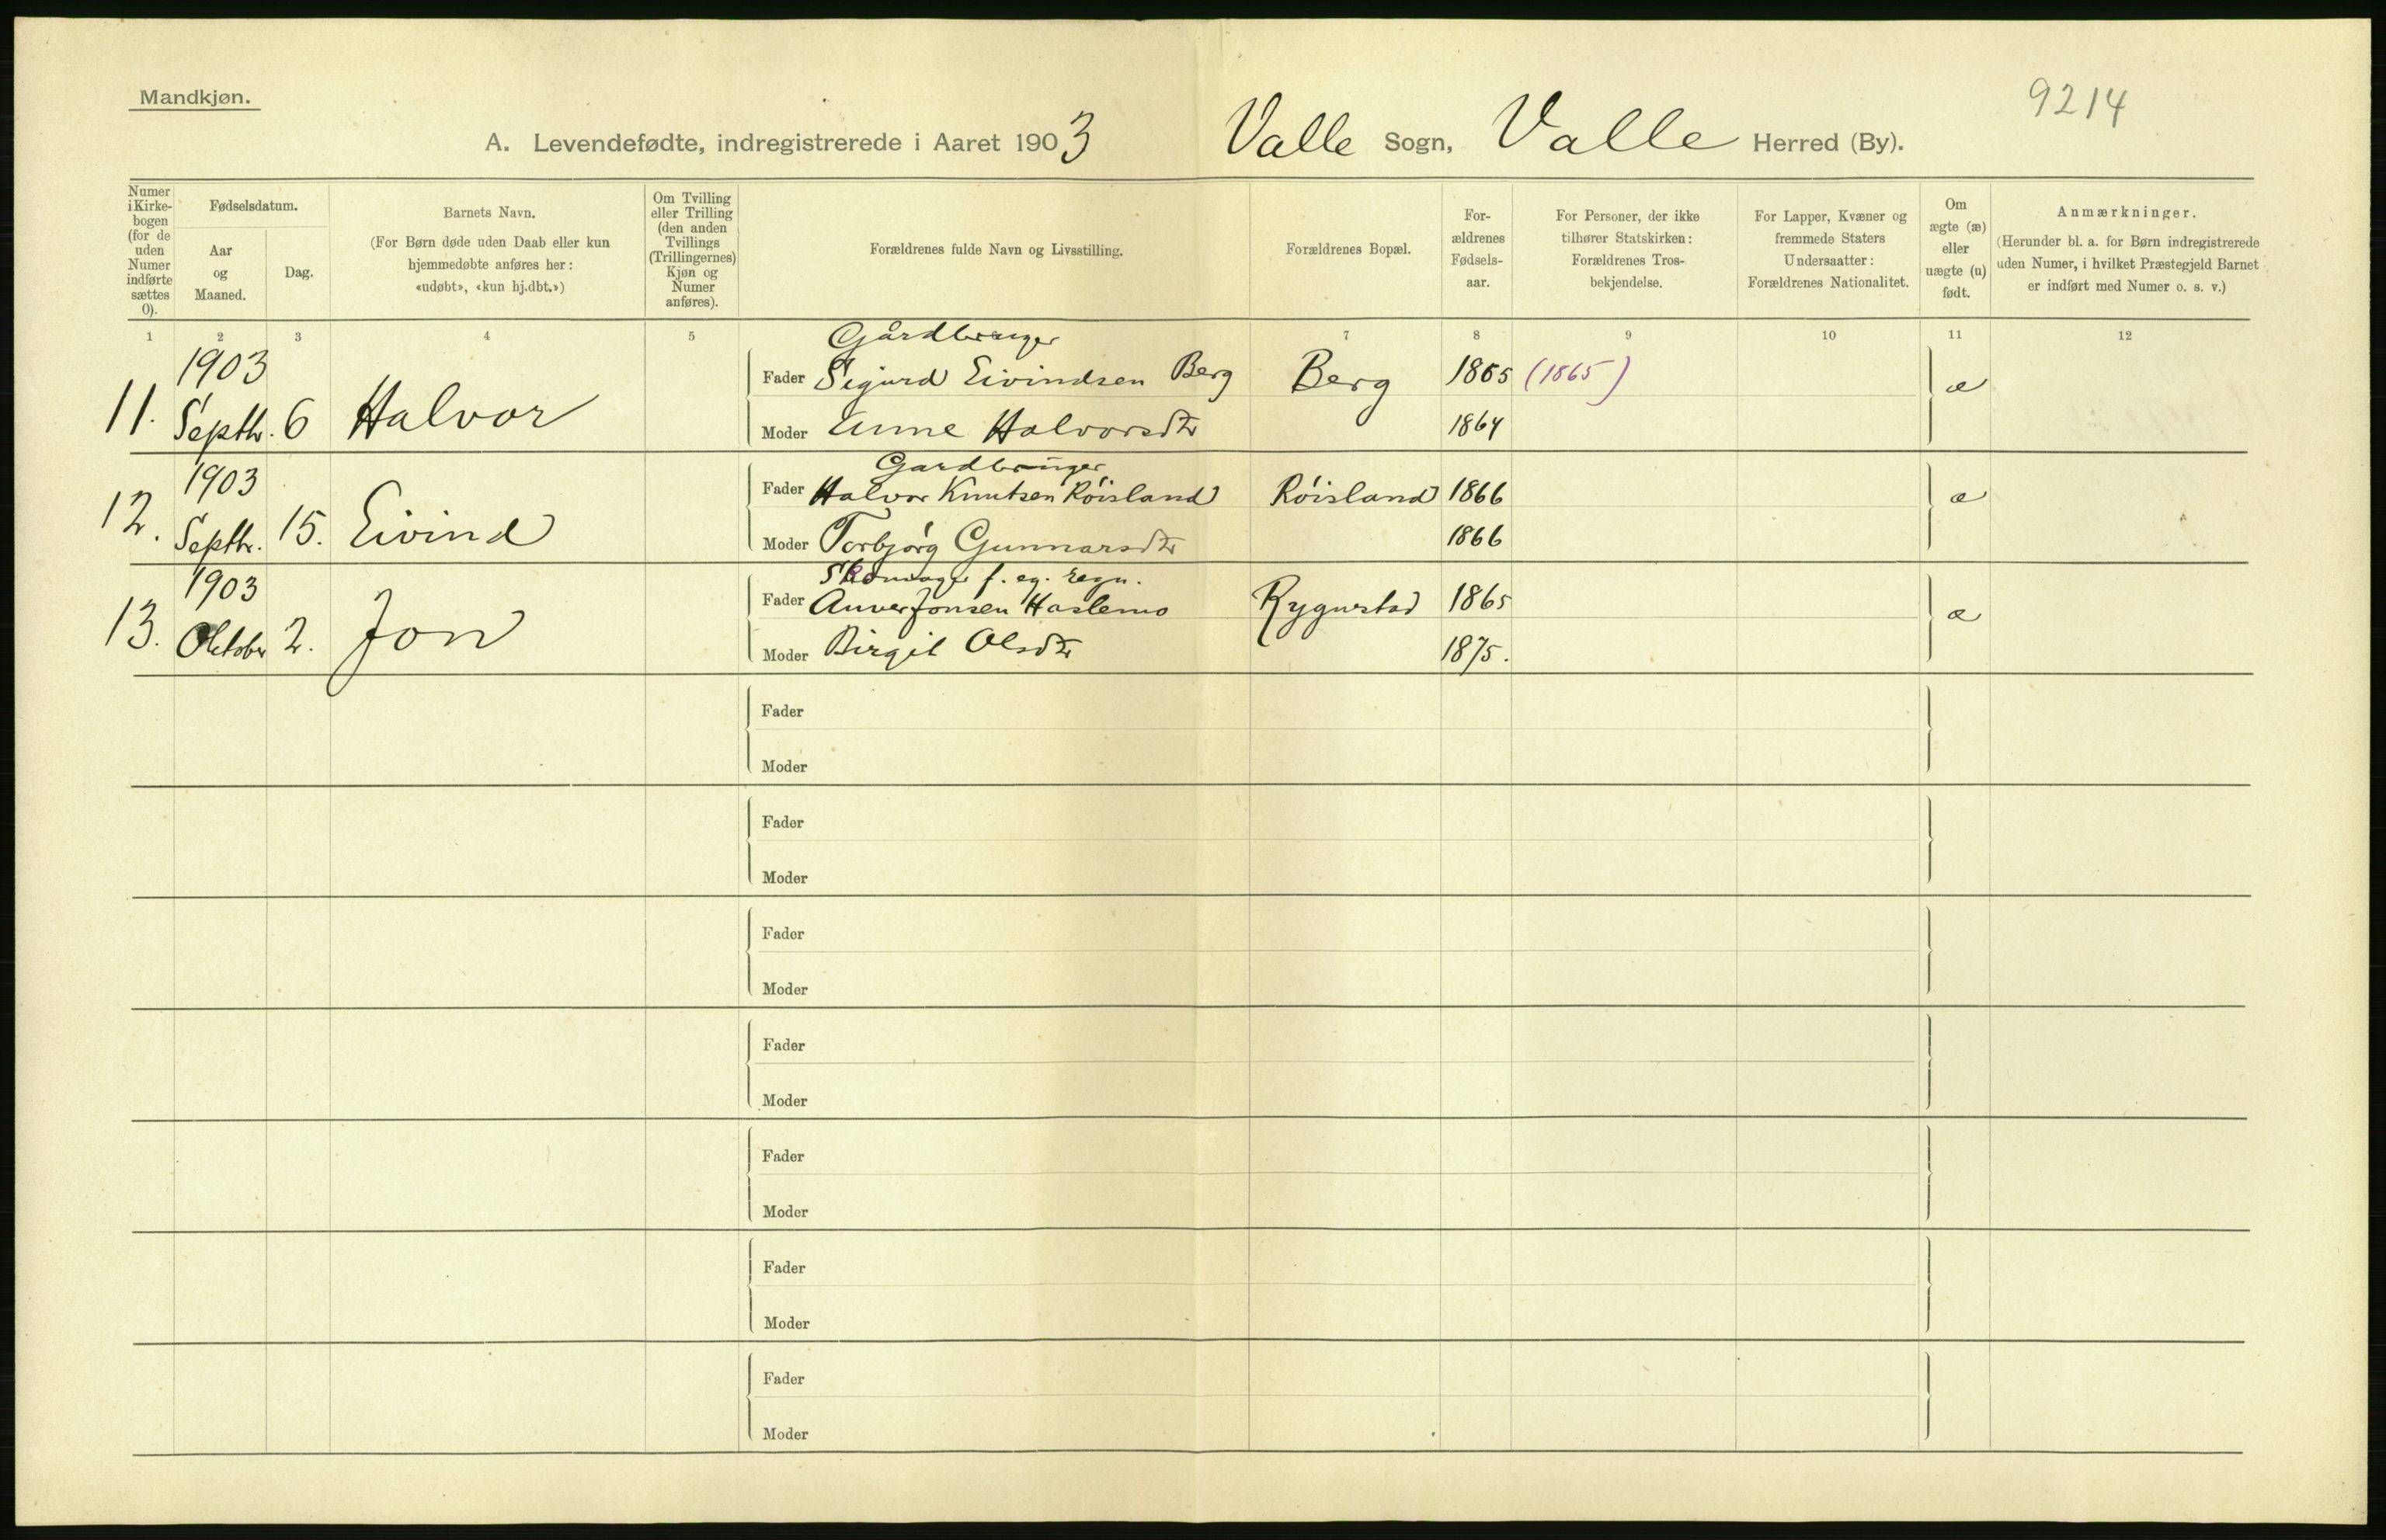 Mandkjøn.
9214
A. Levendefødte, indregistrerede i Aaret 1903 Valle Sogn, Valle Herred (By).
Numer i Kirke-bogen (for de uden Numer indførte sættes 0).
Fødselsdatum.
Aar og Maaned.
Dag.
Barnets Navn.
(For Børn døde uden Daab eller kun hjemmedøbte anføres her: «udøbt», «kun hj.dbt.»)
Om Tvilling eller Trilling (den anden Tvillings (Trillingernes) Kjøn og Numer anføres).
Forældrenes fulde Navn og Livsstilling.
Forældrenes Bopæl.
For-ældrenes Fødsels-aar.
For Personer, der ikke tilhører Statskirken: Forældrenes Tros-bekjendelse.
For Lapper, Kvæner og fremmede Staters Undersaatter: Forældrenes Nationalitet.
Om ægte (æ) eller uægte (u) født.
Anmærkninger.
(Herunder bl. a. for Børn indregistrerede uden Numer, i hvilket Præstegjeld Barnet er indført med Numer o. s. v.)
1 2 3 4 5 7 8 9 10 11 12
Gårdbruger
11. 1903 Septbr. 6 Halvor Fader Sigurd Eivindsen Berg Berg 1865 (1865) æ
Moder Anne Halvorsdtr 1864
Gardbruger
12. 1903 Septbr. 15. Eivind Fader Halvor Knutsen Róisland Róisland 1866 æ
Moder Torbjórg Gunnarsdtr 1866
Skomager f. eg. regn.
13. 1903 Oktober 2. Jon Fader Anver Jonsen Haslemo Rygnestad 1865 æ
Moder Birgit Olsdtr 1875.
Fader
Moder
Fader
Moder
Fader
Moder
Fader
Moder
Fader
Moder
Fader
Moder
Fader
Moder